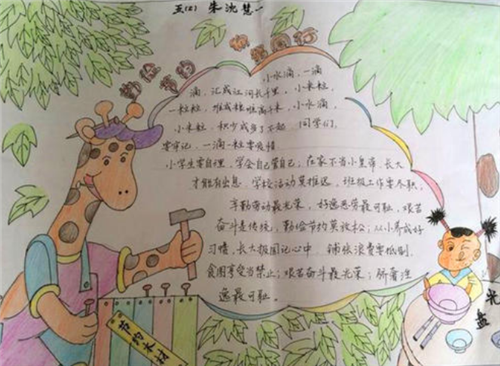 五(2) 朱沈慧一
勤俭节约 伴我同行
小水滴,一滴
滴,汇成江河长千里。小米粒,
一粒粒,堆成粮垛高千米。小水滴,
小米粒,积少成多了不起。同学们,
要牢记,一滴一粒要爱惜
小学生要自理,学会自己靠自己,在家不当小皇帝,长大
才能有出息。学校活动莫推迟,班级工作要尽职,
勤劳动最光荣,好逸恶劳最可耻,艰苦
奋斗是传统,勤俭节约莫放松;从小养成好
习惯,长大报国记心中,铺张浪费要抵制,
贪图享受当禁止;艰苦奋斗最光荣;骄奢淫
逸最可耻。
节约木材
光盘